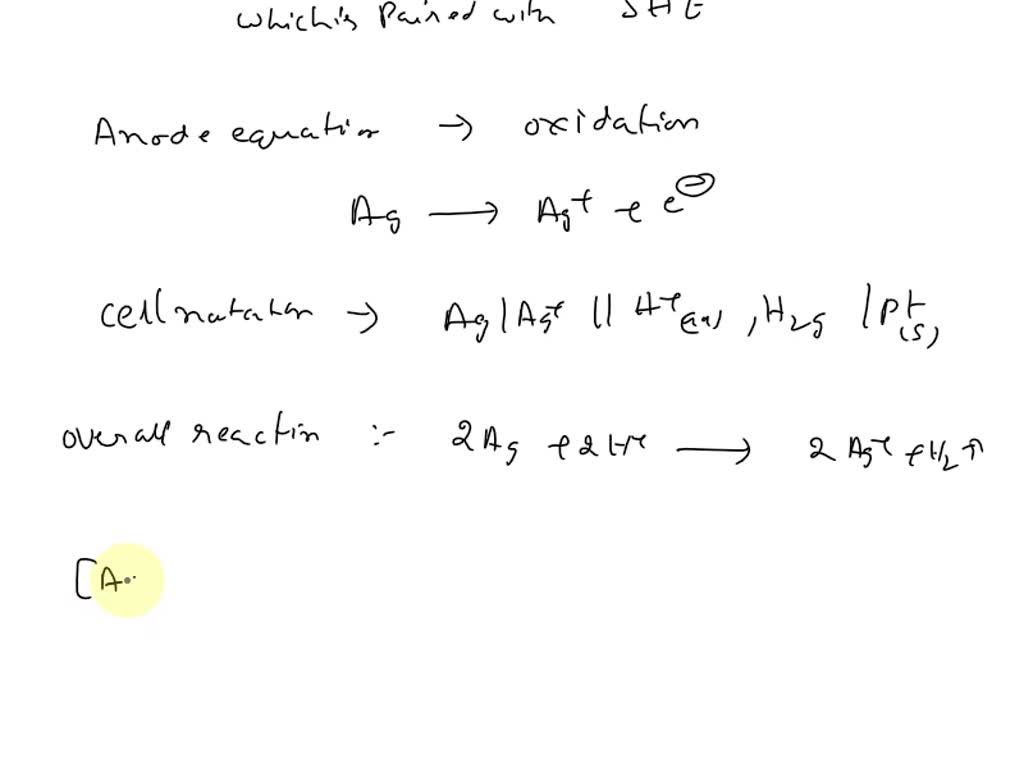 which's Paired with SHE
Anode equation → oxidation
Ag → Ag⁺ + e⊖
cell notation → Ag | Ag⁺ || H⁺(aq) , H₂g | Pt(s)
overall reaction :- 2Ag + 2H⁺ → 2Ag⁺ + H₂↑
[A